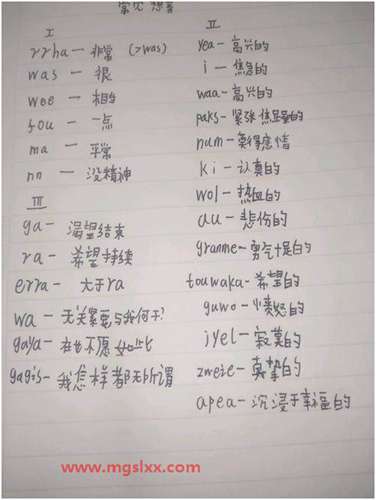 常见
I
rrha — 非常 (>was)
was — 很
wee — 相当
fou — 一点
ma — 平常
nn — 没精神
III
ga — 渴望结束
ra — 希望持续
erra — 大于ra
wa — 无关紧要与我何干?
gaya — 再也不愿如此
gagis — 我怎样都无所谓
II
yea — 高兴的
i — 焦急的
waa — 高兴的
paks — 紧张焦虑的
num — 莫得感情
ki — 认真的
wol — 热血的
au — 悲伤的
granme — 勇气十足的
touwaka — 希望的
guwo — 愤怒的
jyel — 寂寞的
zweie — 真挚的
apea — 沉浸于幸福的
www.mgslxx.com